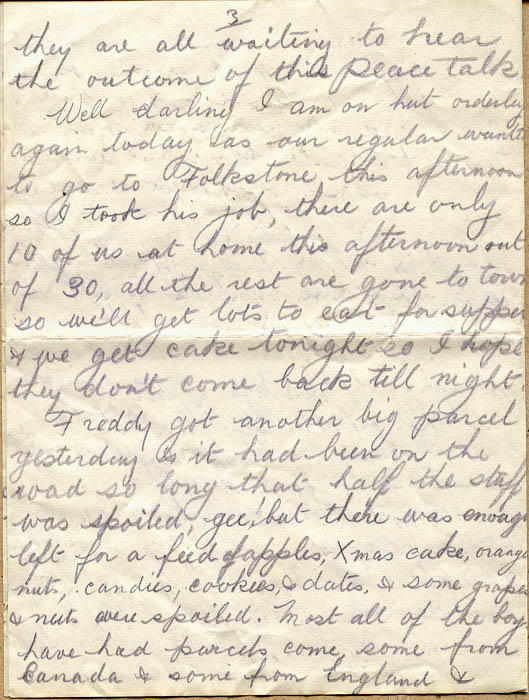 3
they are all waiting to hear
the outcome of this peace talk
Well darling I am on hut orderly
again today as our regular wants
to go to Folkstone this afternoon
so I took his job, there are only
10 of us at home this afternoon out
of 30, all the rest are gone to town
so we'll get lots to eat for supper
& we get cake tonight so I hope
they don't come back till night
Freddy got another big parcel
yesterday & it had been on the
road so long that half the stuff
was spoiled, gee, but there was enough
left for a feed of apples, Xmas cake, orange
nuts, candies, cookies, & dates, & some grapes
& nuts were spoiled. Most all of the boys
have had parcels come, some from
Canada & some from England &